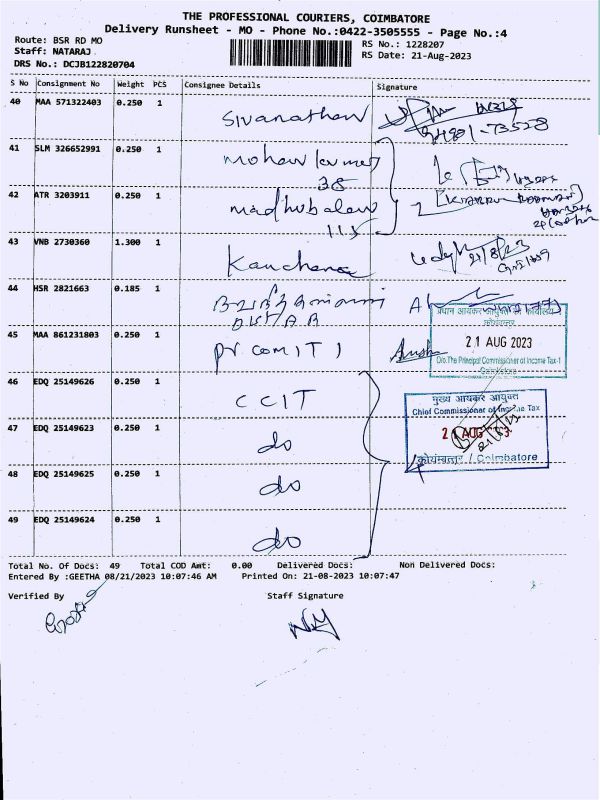 THE PROFESSIONAL COURIERS, COIMBATORE
Delivery Runsheet - MO - Phone No.:0422-3505555 - Page No.:4
Route: BSR RD MO
Staff: NATARAJ
DRS No.: DCJB122820704
RS No.: 1228207
RS Date: 21-Aug-2023
S No Consignment No Weight PCS Consignee Details Signature
40 MAA 571322403 0.250 1 Sivanathan
41 SLM 326652991 0.250 1 Mohan kumar
38
42 ATR 3203911 0.250 1 madhubalan
115
43 VNB 2730360 1.300 1 Kanchana 21/8/23
44 HSR 2821663 0.185 1
प्रधान आयकर आयुक्त का कार्यालय
कोयंबत्तूर
21 AUG 2023
O/o.The Principal Commissioner of Income Tax-1
Coimbatore
45 MAA 861231803 0.250 1 Pr. com IT 1
46 EDQ 25149626 0.250 1 CCIT
मुख्य आयकर आयुक्त
Chief Commissioner of Income Tax
47 EDQ 25149623 0.250 1 do
कोयम्बत्तूर / Coimbatore
48 EDQ 25149625 0.250 1 do
49 EDQ 25149624 0.250 1 do
Total No. Of Docs: 49 Total COD Amt: 0.00 Delivered Docs: Non Delivered Docs:
Entered By :GEETHA 08/21/2023 10:07:46 AM Printed On: 21-08-2023 10:07:47
Verified By Staff Signature